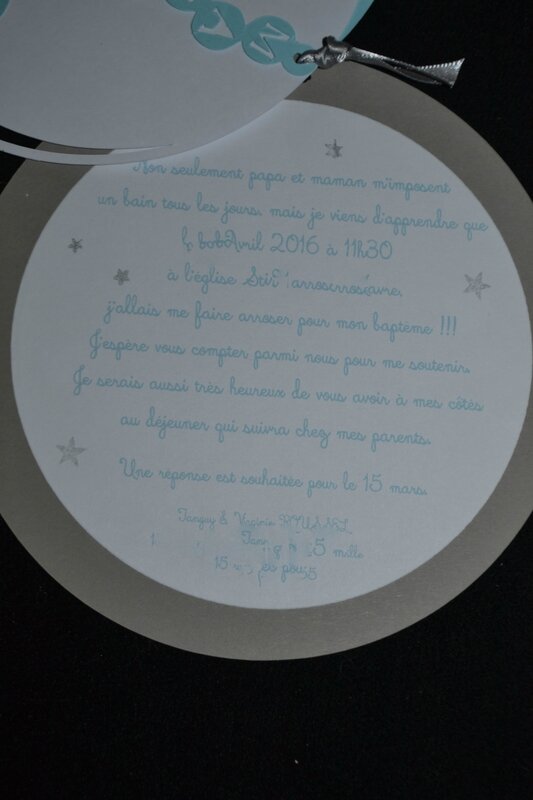 M
A
Non seulement papa et maman m'imposent
un bain tous les jours, mais je viens d'apprendre que
Avril 2016 à 11h30
à l'église
j'allais me faire arroser pour mon baptème !!!
J'espère vous compter parmi nous pour me soutenir.
Je serais aussi très heureux de vous avoir à mes côtés
au déjeuner qui suivra chez mes parents.
Une réponse est souhaitée pour le 15 mars.
Tanguy & Virginie
5 mille
15